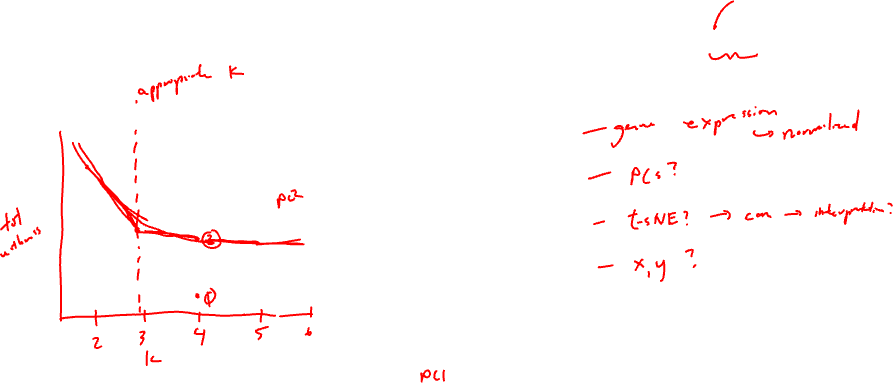 appropriate K
tot
withinss
PC2
②
①
2 3 4 5 6
K
PC1
— gene expression
↳ normalized
— PCs?
— t-sNE? → can → interpretation?
— x, y ?